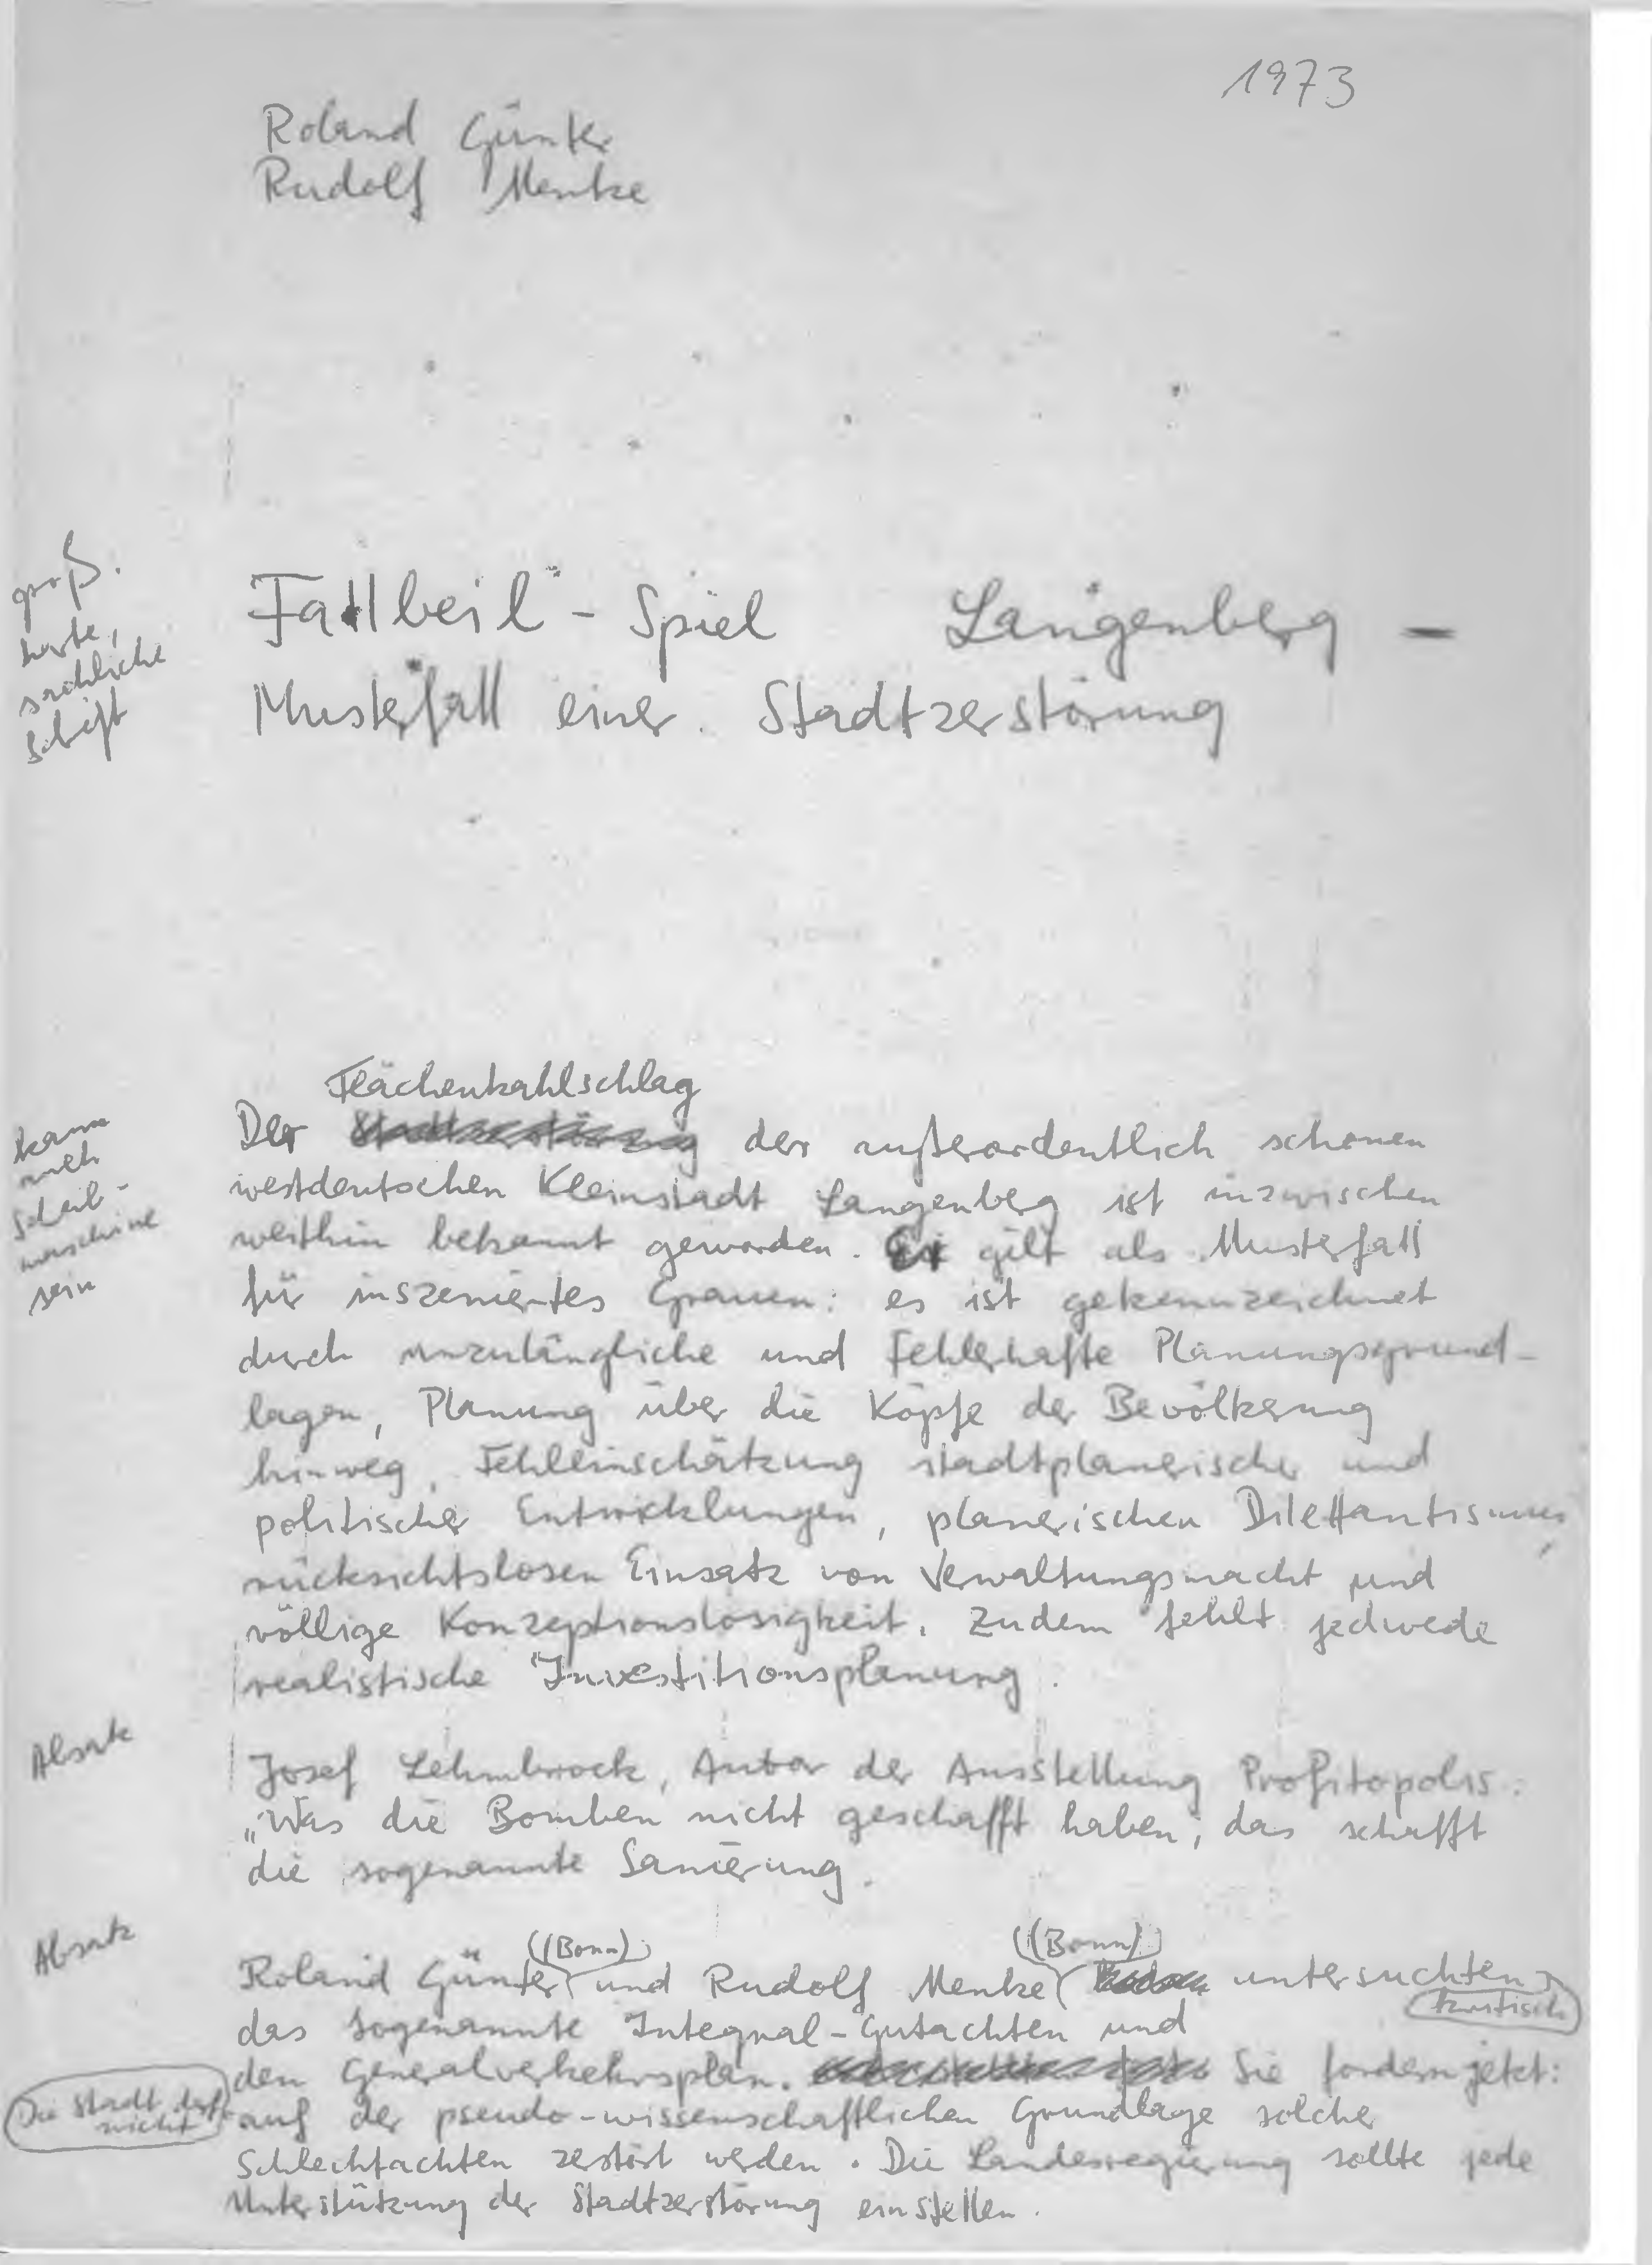 1973
Roland Günter
Rudolf Menke
groß.
harte,
sachliche
Schrift
"Fallbeil"-Spiel Langenberg –
Musterfall einer Stadtzerstörung
kann
auch
Schreib-
maschine
sein
Flächenkahlschlag
Der Stadtzerstörung der außerordentlich schönen
westdeutschen Kleinstadt Langenberg ist inzwischen
weithin bekannt geworden. Er gilt als Musterfall
für inszeniertes Grauen: es ist gekennzeichnet
durch unzulängliche und fehlerhafte Planungsgrund-
lagen, Planung über die Köpfe der Bevölkerung
hinweg, Fehleinschätzung stadtplanerischer und
politischer Entwicklungen, planerischen Dilettantismus,
rücksichtslosen Einsatz von Verwaltungsmacht und
völlige Konzeptionslosigkeit. Zudem fehlt jedwede
realistische Investitionsplanung.
Absatz
Josef Lehmbrock, Autor der Ausstellung Profitopolis:
„Was die Bomben nicht geschafft haben, das schafft
die sogenannte Sanierung.
Absatz
((Bonn)) ((Bonn))
Roland Günter und Rudolf Menke untersuchten
kritisch
das sogenannte Integral-Gutachten und
den Generalverkehrsplan. Sie fordern jetzt:
Die Stadt darf
nicht
auf der pseudo-wissenschaftlichen Grundlage solcher
Schlechtachten zerstört werden. Die Landesregierung sollte jede
Unterstützung der Stadtzerstörung einstellen.